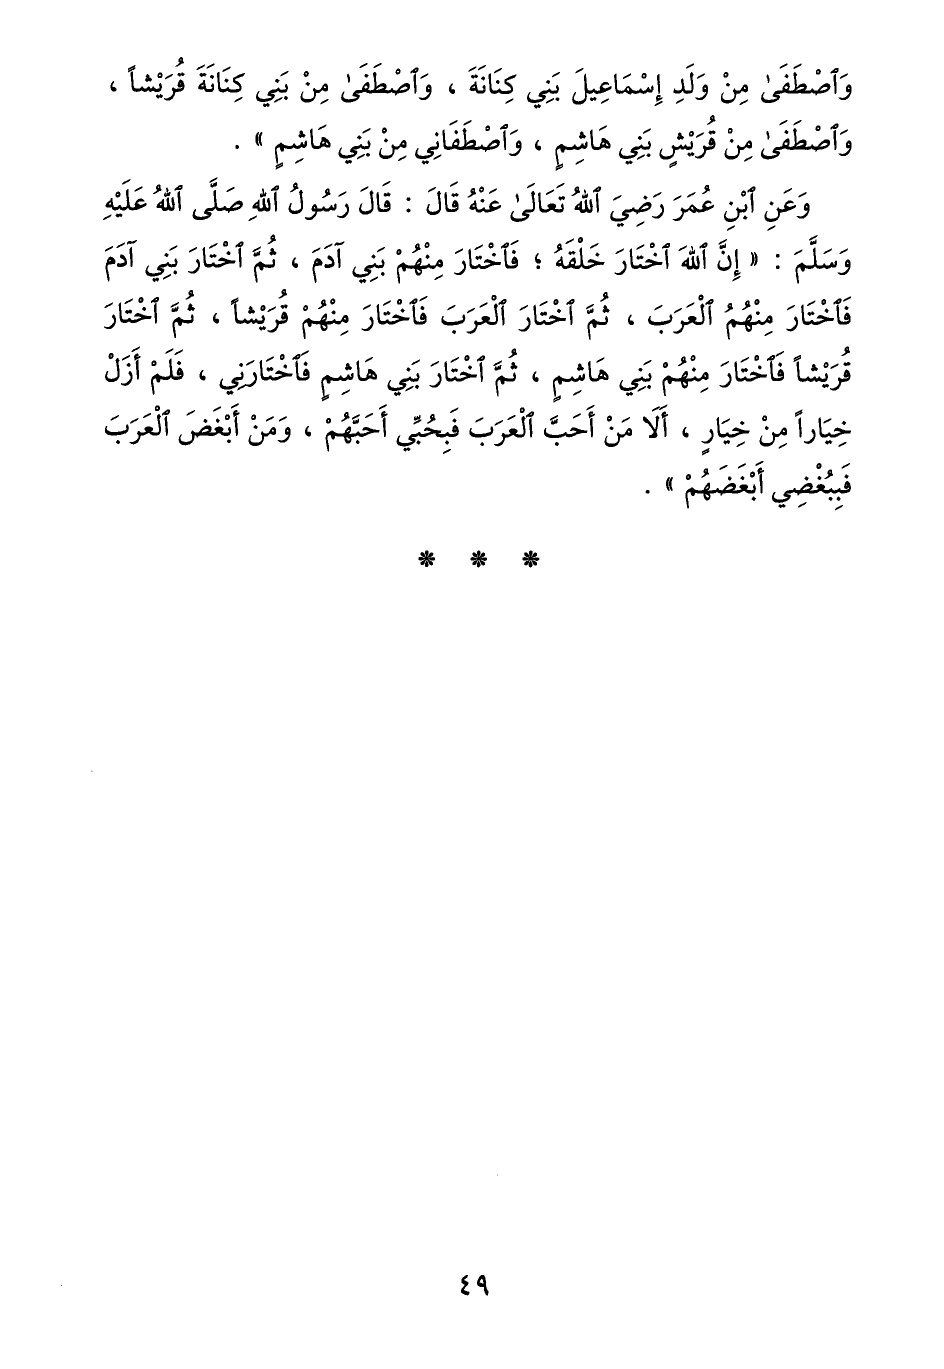 وَٱصْطَفَىٰ مِنْ وَلَدِ إِسْمَاعِيلَ بَنِي كِنَانَةَ ، وَٱصْطَفَىٰ مِنْ بَنِي كِنَانَةَ قُرَيْشاً ،
وَٱصْطَفَىٰ مِنْ قُرَيْشٍ بَنِي هَاشِمٍ ، وَٱصْطَفَانِي مِنْ بَنِي هَاشِمٍ » .
وَعَنِ ٱبْنِ عُمَرَ رَضِيَ ٱللهُ تَعَالَىٰ عَنْهُ قَالَ : قَالَ رَسُولُ ٱللهِ صَلَّى ٱللهُ عَلَيْهِ
وَسَلَّمَ : « إِنَّ ٱللهَ ٱخْتَارَ خَلْقَهُ ؛ فَٱخْتَارَ مِنْهُمْ بَنِي آدَمَ ، ثُمَّ ٱخْتَارَ بَنِي آدَمَ
فَٱخْتَارَ مِنْهُمُ ٱلْعَرَبَ ، ثُمَّ ٱخْتَارَ ٱلْعَرَبَ فَٱخْتَارَ مِنْهُمْ قُرَيْشاً ، ثُمَّ ٱخْتَارَ
قُرَيْشاً فَٱخْتَارَ مِنْهُمْ بَنِي هَاشِمٍ ، ثُمَّ ٱخْتَارَ بَنِي هَاشِمٍ فَٱخْتَارَنِي ، فَلَمْ أَزَلْ
خِيَاراً مِنْ خِيَارٍ ، أَلَا مَنْ أَحَبَّ ٱلْعَرَبَ فَبِحُبِّي أَحَبَّهُمْ ، وَمَنْ أَبْغَضَ ٱلْعَرَبَ
فَبِبُغْضِي أَبْغَضَهُمْ » .
* * *
٤٩